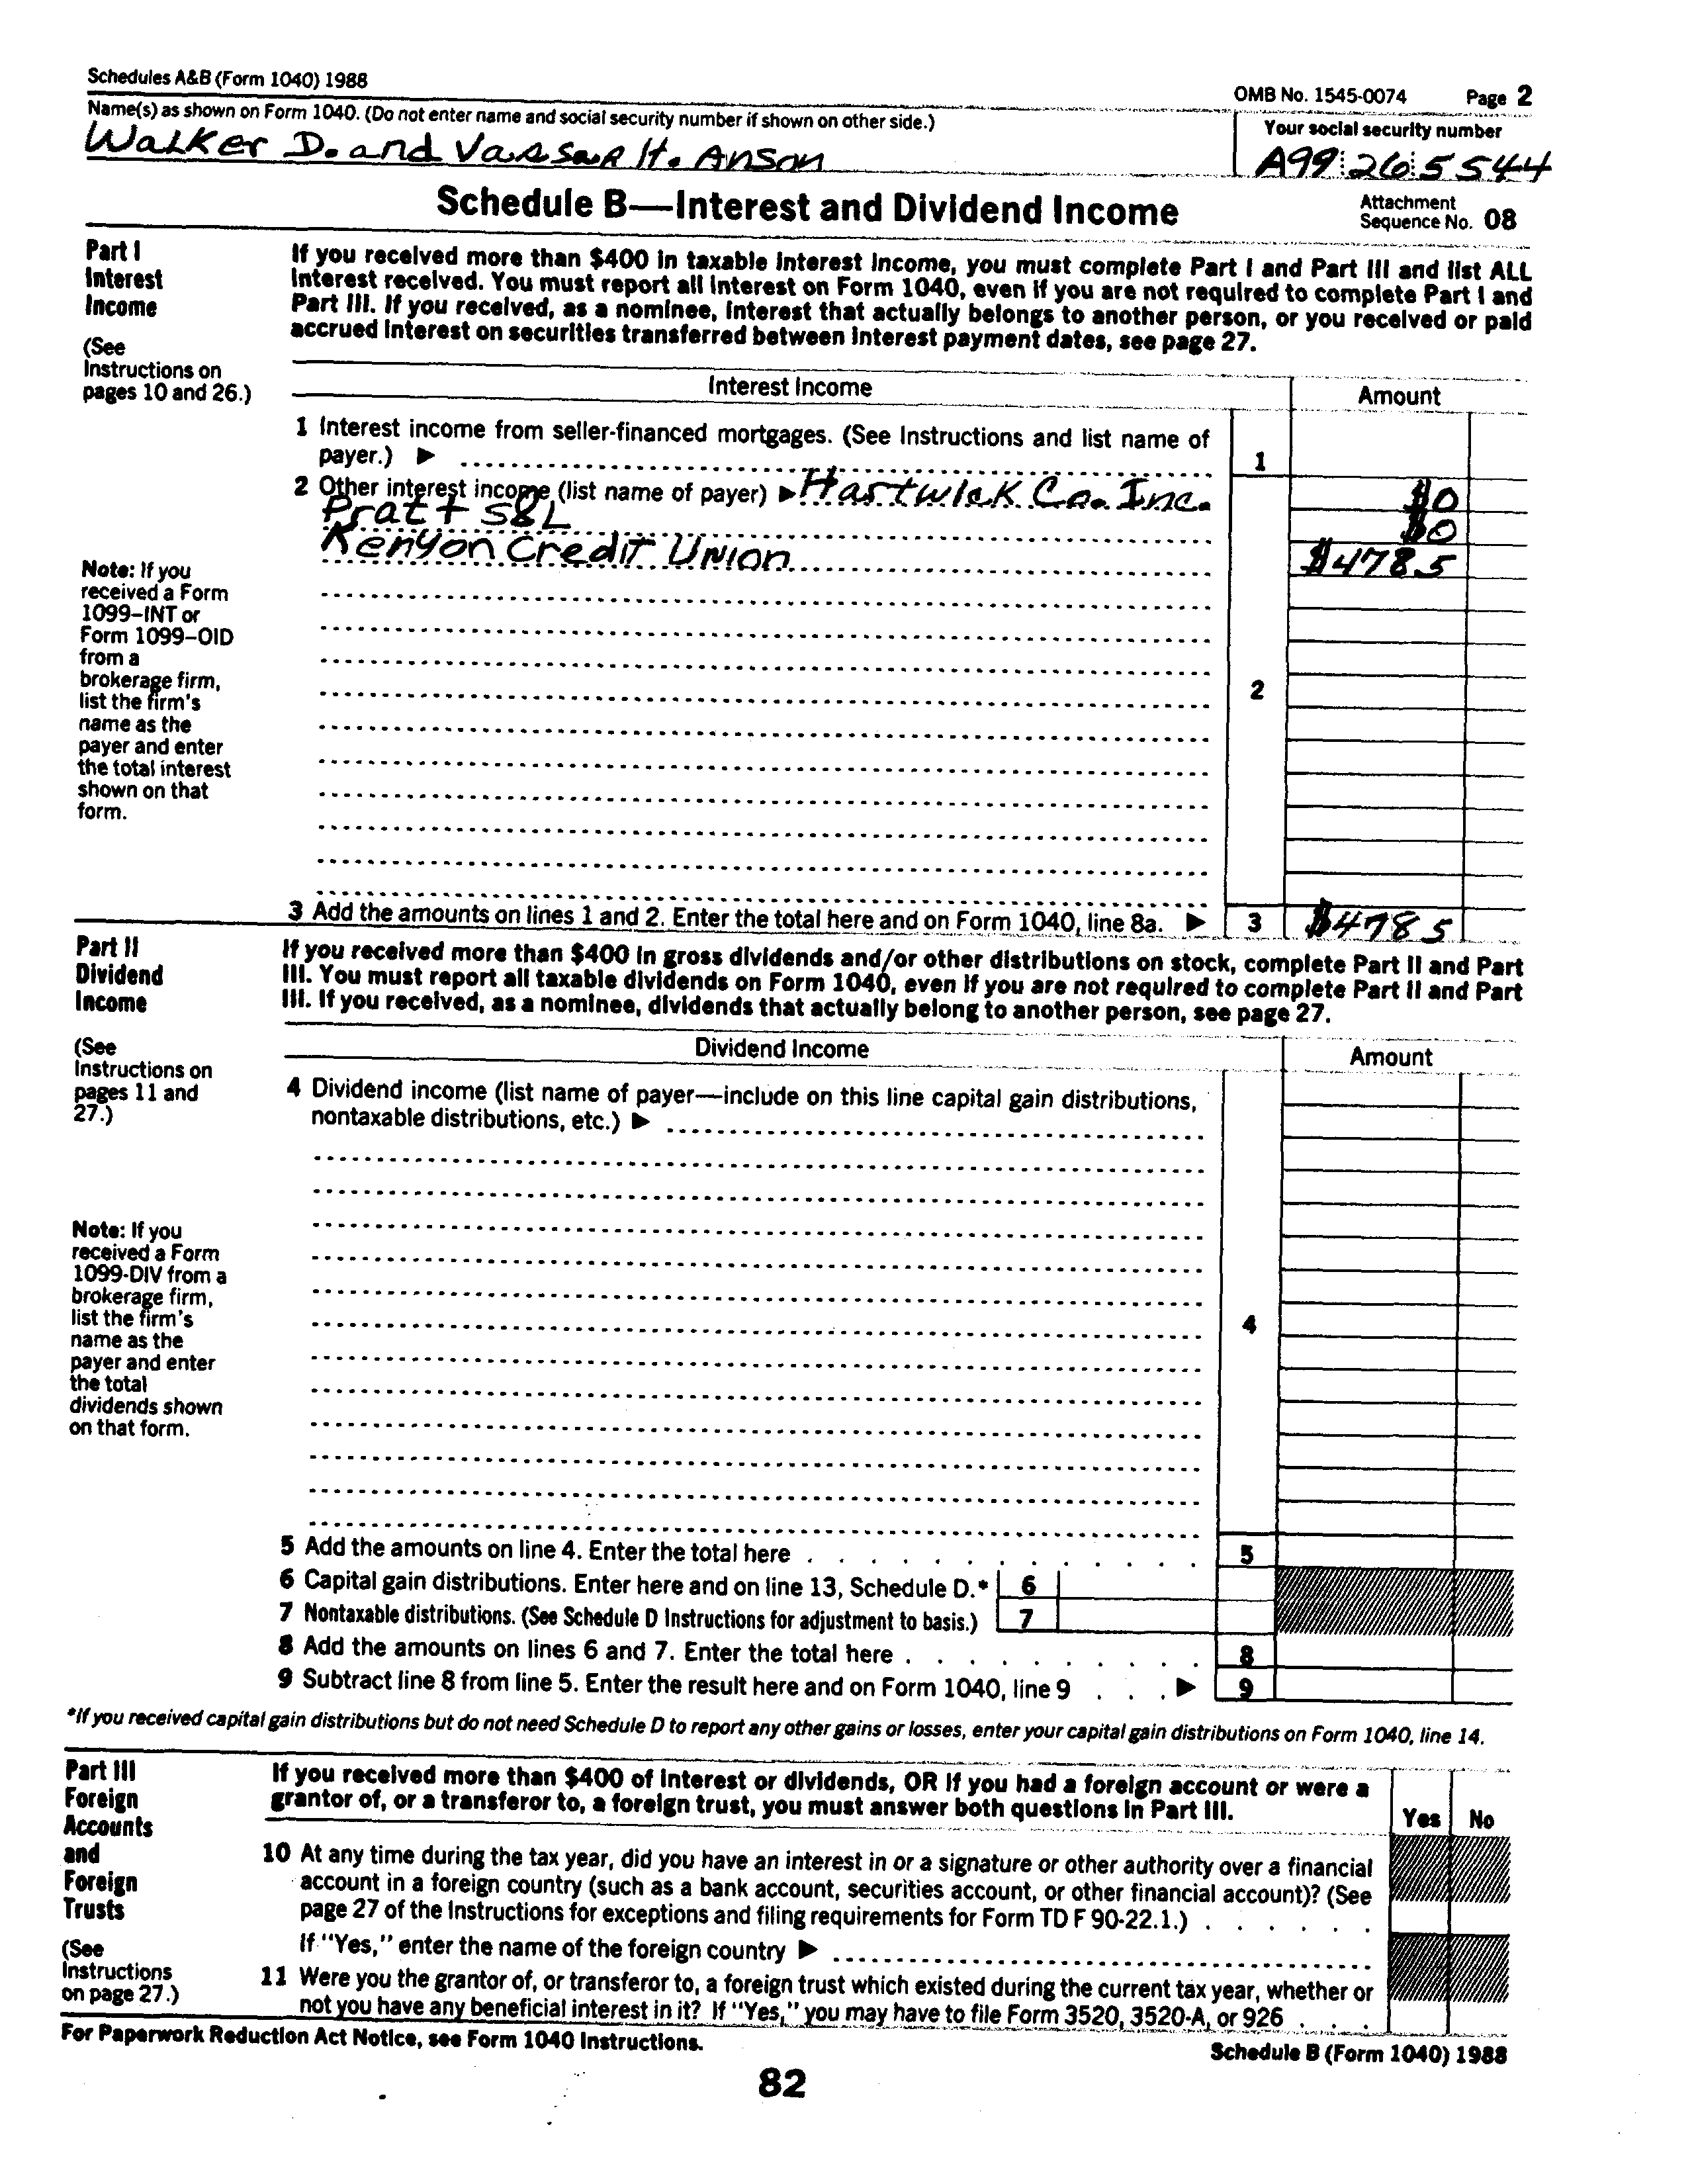 Schedules A&B (Form 1040) 1988
OMB No. 1545-0074 Page 2
Name(s) as shown on Form 1040. (Do not enter name and social security number if shown on other side.)
Your social security number
Walker D. and Vassar H. Anson
A99 26 5544
Schedule B—Interest and Dividend Income
Attachment
Sequence No. 08
Part I
Interest
Income
(See
Instructions on
pages 10 and 26.)
If you received more than $400 in taxable interest income, you must complete Part I and Part III and list ALL
interest received. You must report all interest on Form 1040, even if you are not required to complete Part I and
Part III. If you received, as a nominee, interest that actually belongs to another person, or you received or paid
accrued interest on securities transferred between interest payment dates, see page 27.
Interest Income
Amount
1 Interest income from seller-financed mortgages. (See Instructions and list name of
payer.) ▶
1
2 Other interest income (list name of payer) ▶ Hartwick Co. Inc.
$0
Pratt S&L
$0
Kenyon Credit Union
$4785
Note: If you
received a Form
1099–INT or
Form 1099–OID
from a
brokerage firm,
list the firm's
name as the
payer and enter
the total interest
shown on that
form.
2
3 Add the amounts on lines 1 and 2. Enter the total here and on Form 1040, line 8a. ▶
3
$4785
Part II
Dividend
Income
(See
Instructions on
pages 11 and
27.)
If you received more than $400 in gross dividends and/or other distributions on stock, complete Part II and Part
III. You must report all taxable dividends on Form 1040, even if you are not required to complete Part II and Part
III. If you received, as a nominee, dividends that actually belong to another person, see page 27.
Dividend Income
Amount
4 Dividend income (list name of payer—include on this line capital gain distributions,
nontaxable distributions, etc.) ▶
Note: If you
received a Form
1099-DIV from a
brokerage firm,
list the firm's
name as the
payer and enter
the total
dividends shown
on that form.
4
5 Add the amounts on line 4. Enter the total here . . . . . . . . . . . . 5
6 Capital gain distributions. Enter here and on line 13, Schedule D.* 6
7 Nontaxable distributions. (See Schedule D Instructions for adjustment to basis.) 7
8 Add the amounts on lines 6 and 7. Enter the total here . . . . . . . . . . 8
9 Subtract line 8 from line 5. Enter the result here and on Form 1040, line 9 . . . ▶ 9
*If you received capital gain distributions but do not need Schedule D to report any other gains or losses, enter your capital gain distributions on Form 1040, line 14.
Part III
Foreign
Accounts
and
Foreign
Trusts
(See
Instructions
on page 27.)
If you received more than $400 of interest or dividends, OR if you had a foreign account or were a
grantor of, or a transferor to, a foreign trust, you must answer both questions in Part III.
Yes No
10 At any time during the tax year, did you have an interest in or a signature or other authority over a financial
account in a foreign country (such as a bank account, securities account, or other financial account)? (See
page 27 of the Instructions for exceptions and filing requirements for Form TD F 90-22.1.) . . . . . .
If "Yes," enter the name of the foreign country ▶
11 Were you the grantor of, or transferor to, a foreign trust which existed during the current tax year, whether or
not you have any beneficial interest in it? If "Yes," you may have to file Form 3520, 3520-A, or 926 . . .
For Paperwork Reduction Act Notice, see Form 1040 Instructions.
Schedule B (Form 1040) 1988
82